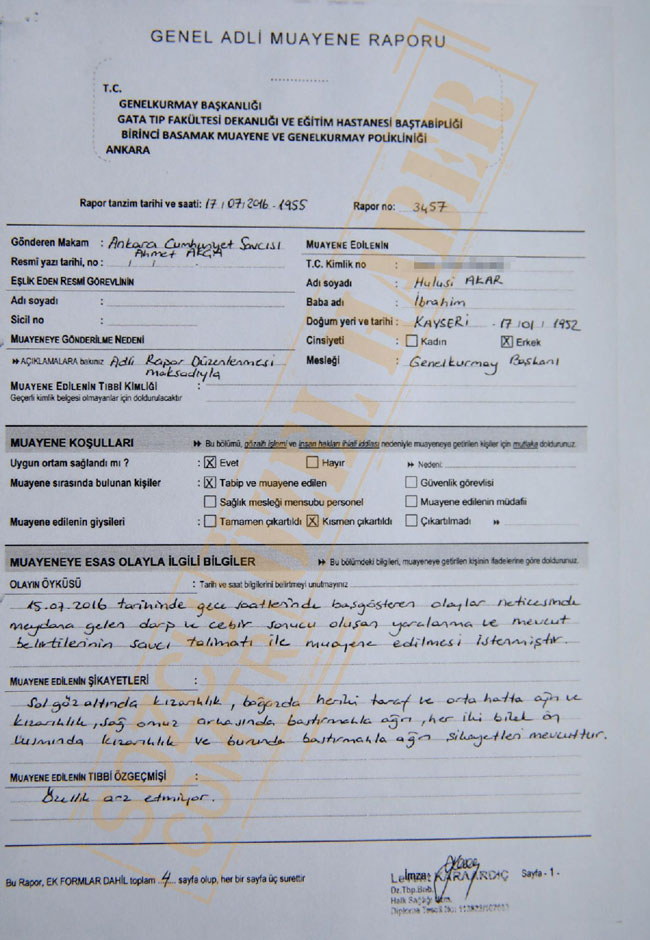 GENEL ADLİ MUAYENE RAPORU
T.C.
GENELKURMAY BAŞKANLIĞI
GATA TIP FAKÜLTESİ DEKANLIĞI VE EĞİTİM HASTANESİ BAŞTABİPLİĞİ
BİRİNCİ BASAMAK MUAYENE VE GENELKURMAY POLİKLİNİĞİ
ANKARA
Rapor tanzim tarihi ve saati: 17/07/2016 - 1955 Rapor no: 3457
Gönderen Makam : Ankara Cumhuriyet Savcısı
Ahmet AKÇA
MUAYENE EDİLENİN
Resmî yazı tarihi, no : T.C. Kimlik no :
EŞLİK EDEN RESMİ GÖREVLİNİN Adı soyadı : Hulusi AKAR
Adı soyadı : Baba adı : İbrahim
Sicil no : Doğum yeri ve tarihi : KAYSERİ - 17/01/1952
MUAYENEYE GÖNDERİLME NEDENİ Cinsiyeti : Kadın X Erkek
AÇIKLAMALARA bakınız Adli Rapor Düzenlenmesi Mesleği : Genelkurmay Başkanı
maksadıyla
MUAYENE EDİLENİN TIBBİ KİMLİĞİ :
Geçerli kimlik belgesi olmayanlar için doldurulacaktır
MUAYENE KOŞULLARI Bu bölümü, gözaltı işlemi ve insan hakları ihlali iddiası nedeniyle muayeneye getirilen kişiler için mutlaka doldurunuz.
Uygun ortam sağlandı mı ? : X Evet Hayır Nedeni
Muayene sırasında bulunan kişiler : X Tabip ve muayene edilen Güvenlik görevlisi
Sağlık mesleği mensubu personel Muayene edilenin müdafii
Muayene edilenin giysileri : Tamamen çıkartıldı X Kısmen çıkartıldı Çıkartılmadı
MUAYENEYE ESAS OLAYLA İLGİLİ BİLGİLER Bu bölümdeki bilgileri, muayeneye getirilen kişinin ifadelerine göre doldurunuz.
OLAYIN ÖYKÜSÜ : Tarih ve saat bilgilerini belirtmeyi unutmayınız
15.07.2016 tarihinde gece saatlerinde başgösteren olaylar neticesinde
meydana gelen darp ve cebir sonucu oluşan yaralanma ve mevcut
belirtilerinin savcı talimatı ile muayene edilmesi istenmiştir.
MUAYENE EDİLENİN ŞİKAYETLERİ :
Sol göz altında kızarıklık, boğazda her iki taraf ve orta hatta ağrı ve
kızarıklık, sağ omuz arkasında bastırmakla ağrı, her iki bilek ön
kısmında kızarıklık ve burunda bastırmakla ağrı şikayetleri mevcuttur.
MUAYENE EDİLENİN TIBBİ ÖZGEÇMİŞİ :
Özellik arz etmiyor.
Bu Rapor, EK FORMLAR DAHİL toplam 4 sayfa olup, her bir sayfa üç surettir
İmza: Sayfa - 1 -
Levent KARAARDIÇ
Dr.Tbp.Bnb.
Halk Sağlığı Uzm.
SÖZCÜ ÖZEL HABER
.COM.TR